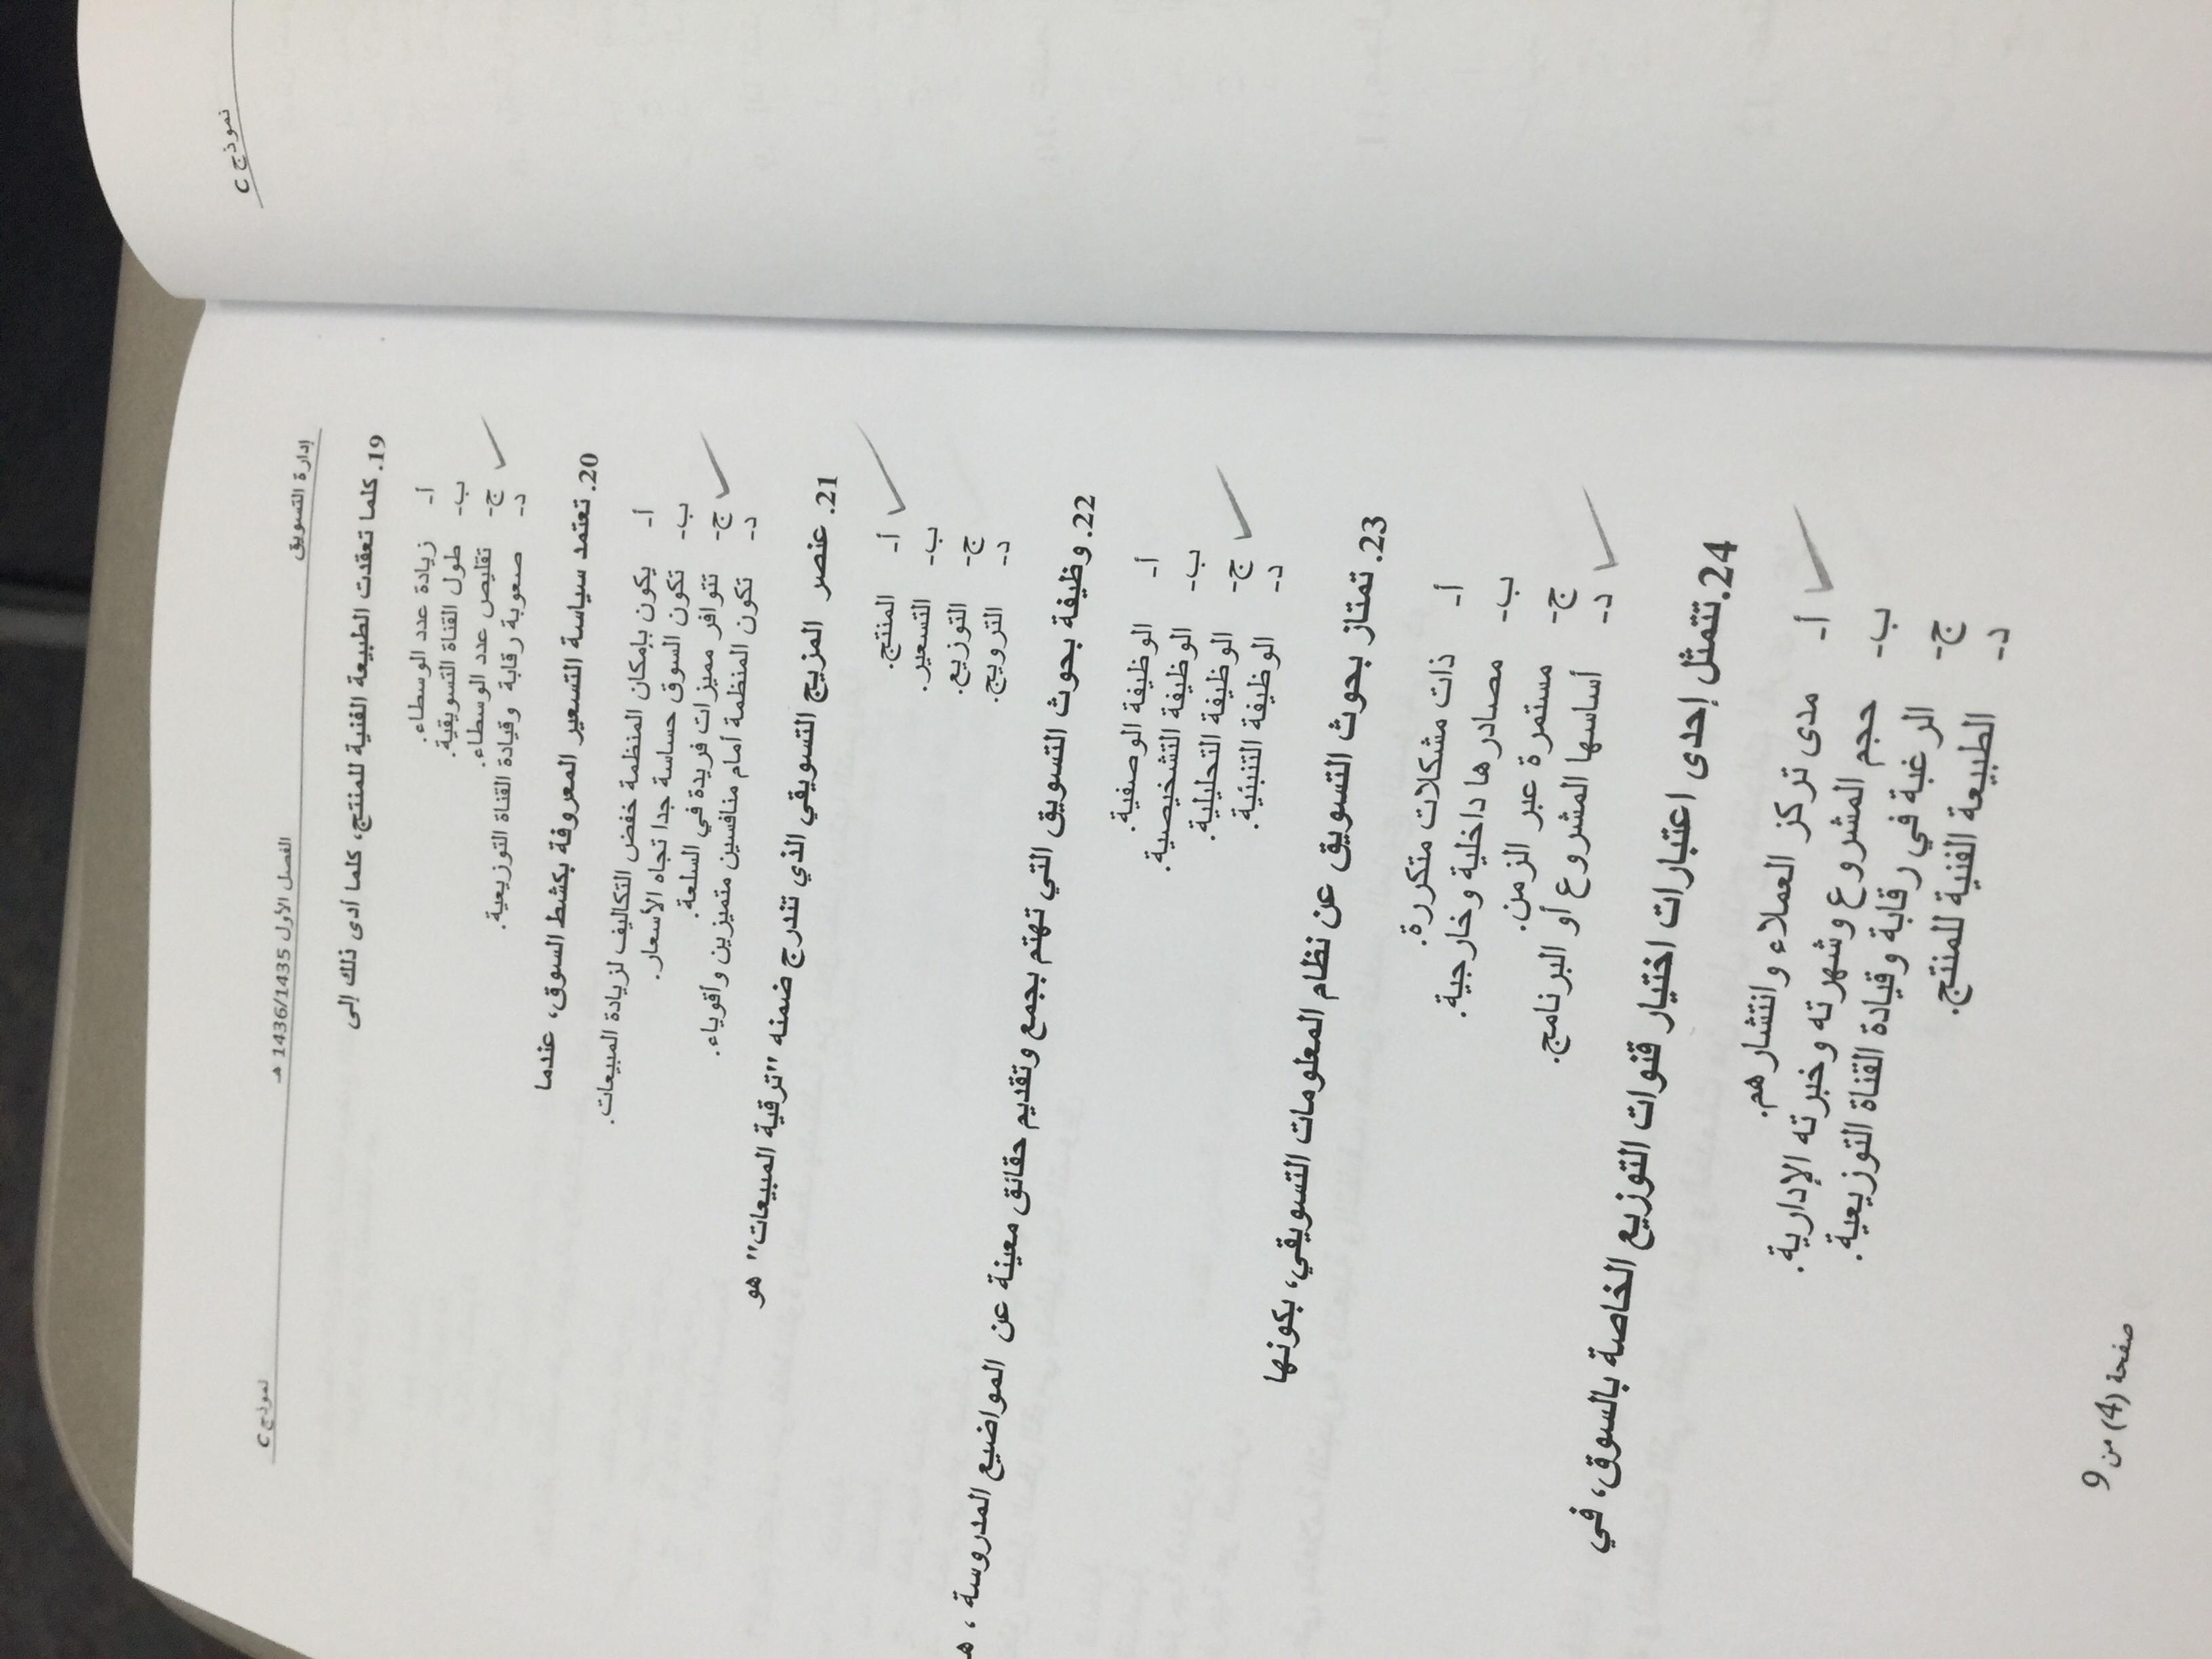 نموذج C
إدارة التسويق
الفصل الأول 1436/1435 هـ
نموذج C
19. كلما تعقدت الطبيعة الفنية للمنتج، كلما أدى ذلك إلى
أ- زيادة عدد الوسطاء.
ب- طول القناة التسويقية.
ج- تقليص عدد الوسطاء.
د- صعوبة رقابة وقيادة القناة التوزيعية.
20. تعتمد سياسة التسعير المعروفة بكشط السوق، عندما
أ- يكون بإمكان المنظمة خفض التكاليف لزيادة المبيعات.
ب- تكون السوق حساسة جدا تجاه الأسعار.
ج- تتوافر مميزات فريدة في السلعة.
د- تكون المنظمة أمام منافسين متميزين وأقوياء.
21. عنصر المزيج التسويقي الذي تندرج ضمنه "ترقية المبيعات" هو
أ- المنتج.
ب- التسعير.
ج- التوزيع.
د- الترويج.
22. وظيفة بحوث التسويق التي تهتم بجمع وتقديم حقائق معينة عن المواضيع المدروسة ،
أ- الوظيفة الوصفية.
ب- الوظيفة التشخيصية.
ج- الوظيفة التحليلية.
د- الوظيفة التنبئية.
23. تمتاز بحوث التسويق عن نظام المعلومات التسويقي، بكونها
أ- ذات مشكلات متكررة.
ب- مصادرها داخلية وخارجية.
ج- مستمرة عبر الزمن.
د- أساسها المشروع أو البرنامج.
24. تتمثل إحدى اعتبارات اختيار قنوات التوزيع الخاصة بالسوق، في
أ- مدى تركز العملاء وانتشارهم.
ب- حجم المشروع وشهرته وخبرته الإدارية.
ج- الرغبة في رقابة وقيادة القناة التوزيعية.
د- الطبيعة الفنية للمنتج.
صفحة (4) من 9